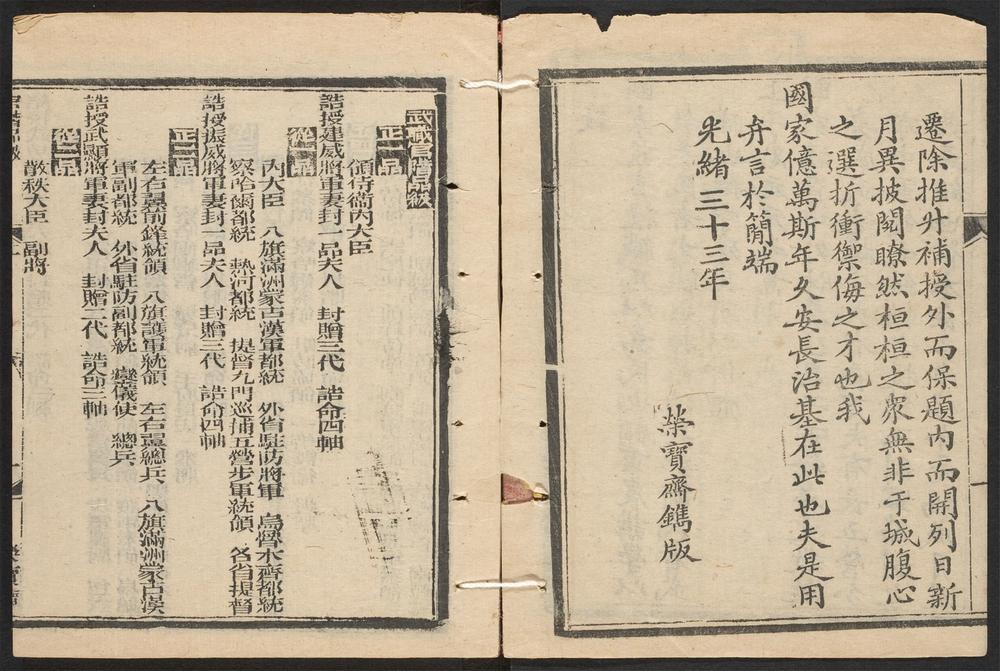 遷除推升補授外而保題內而開列日新
月異披閱瞭然桓桓之衆無非干城腹心
之選折衝禦侮之才也我
國家億萬斯年久安長治基在此也夫是用
弁言於簡端
光緒三十三年
榮寶齋鐫版
武職官階品級
正一品
領侍衞內大臣
誥授建威將軍妻封一品夫人 封贈三代 誥命四軸
從一品
內大臣 八旗滿洲蒙古漢軍都統 外省駐防將軍 烏魯木齊都統
察哈爾都統 熱河都統 提督九門巡捕五營步軍統領 各省提督
誥授振威將軍妻封一品夫人 封贈三代 誥命四軸
正二品
左右翼前鋒統領 八旗護軍統領 左右翼總兵 八旗滿洲蒙古漢
軍副都統 外省駐防副都統 鑾儀使 總兵
誥授武顯將軍妻封夫人 封贈二代 誥命三軸
從二品
散秩大臣 副將